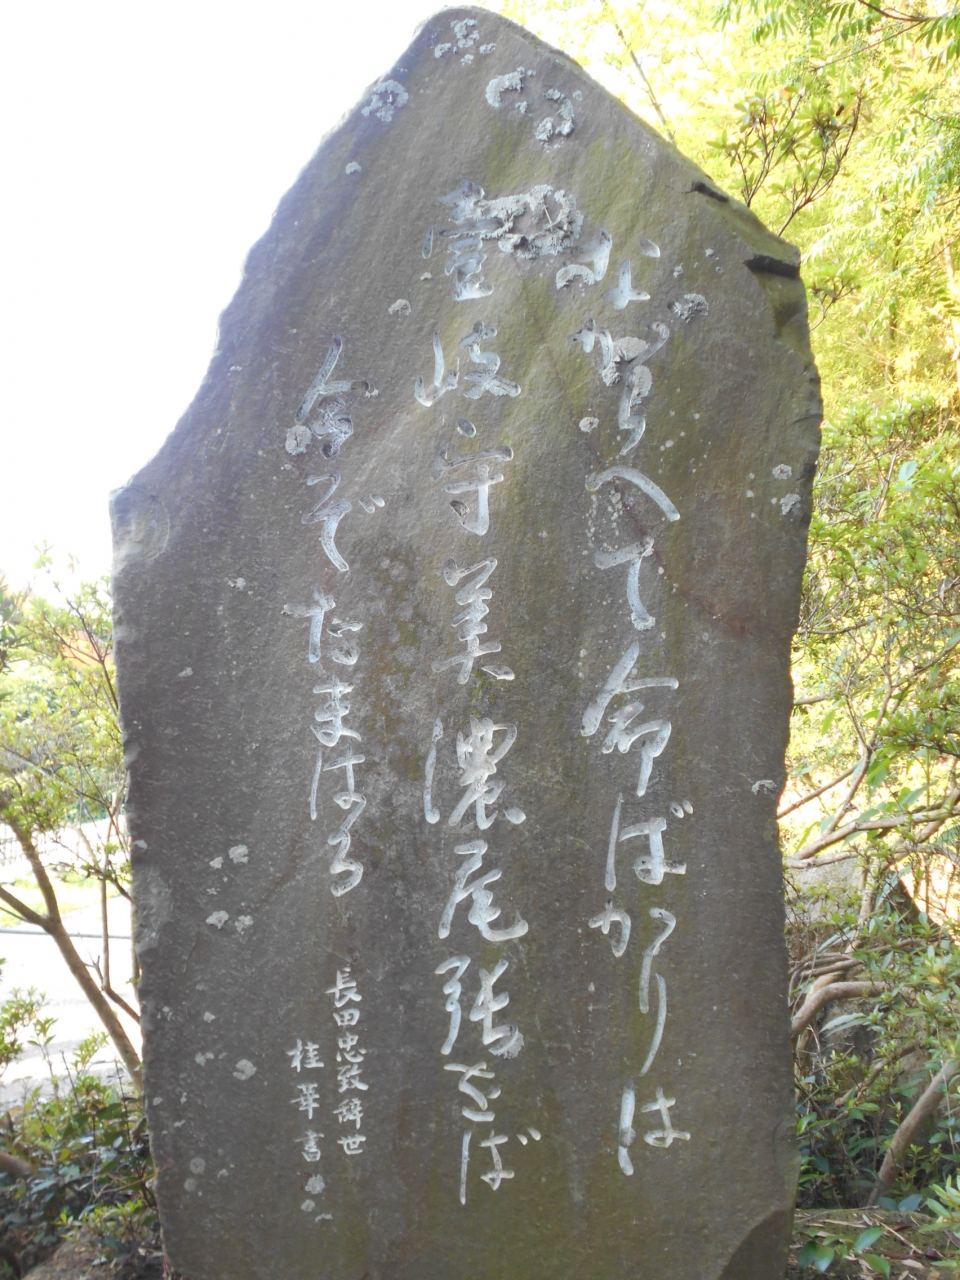 ながらへて命ばかりは
壹岐守美濃尾張をば
今ぞたまはる
長田忠致辞世
桂華書